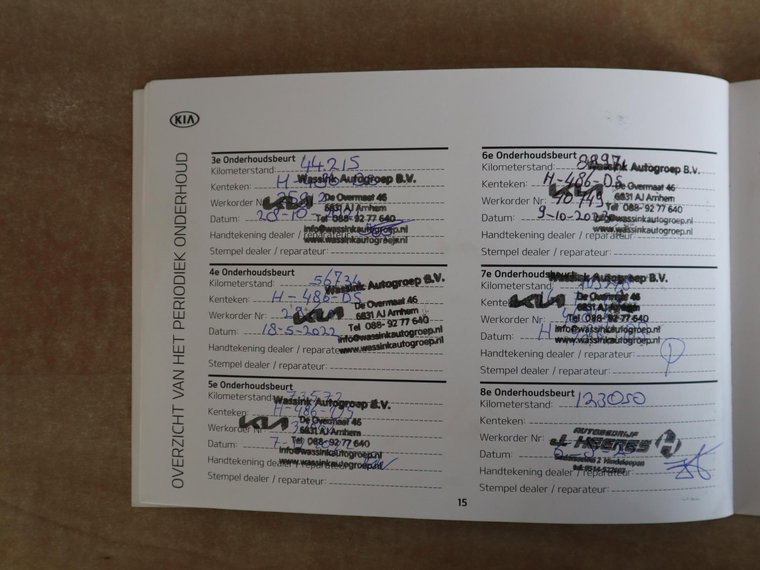 KIA
OVERZICHT VAN HET PERIODIEK ONDERHOUD
3e Onderhoudsbeurt
Kilometerstand: 44.215
Wassink Autogroep B.V.
Kenteken: H-486-DS
De Overmaat 46
Werkorder Nr
KIA
6831 AJ Arnhem
Datum: 28-10
Tel 088-92 77 640
info@wassinkautogroep.nl
Handtekening dealer / reparateur:
www.wassinkautogroep.nl
Stempel dealer / reparateur:
4e Onderhoudsbeurt
Kilometerstand: 56734
Wassink Autogroep B.V.
Kenteken: H-486-DS
De Overmaat 46
Werkorder Nr:
KIA
6831 AJ Arnhem
Datum: 18-5-2022
Tel 088-92 77 640
info@wassinkautogroep.nl
Handtekening dealer / reparateur
www.wassinkautogroep.nl
Stempel dealer / reparateur:
5e Onderhoudsbeurt
Kilometerstand: 73572
Wassink Autogroep B.V.
Kenteken: H-486-DS
KIA
De Overmaat 46
Werkorder Nr
6831 AJ Arnhem
Datum:
Tel 088-92 77 640
info@wassinkautogroep.nl
Handtekening dealer / reparateur
www.wassinkautogroep.nl
Stempel dealer / reparateur:
6e Onderhoudsbeurt
Kilometerstand:
Wassink Autogroep B.V.
Kenteken: H-486-DS
KIA
De Overmaat 46
Werkorder Nr: 40749
6831 AJ Arnhem
Datum: 9-10-
Tel 088-92 77 640
info@wassinkautogroep.nl
Handtekening dealer / reparateur:
www.wassinkautogroep.nl
Stempel dealer / reparateur:
7e Onderhoudsbeurt
Wassink Autogroep B.V.
Kilometerstand:
Kenteken
KIA
De Overmaat 46
6831 AJ Arnhem
Werkorder Nr:
Tel 088-92 77 640
Datum:
info@wassinkautogroep.nl
www.wassinkautogroep.nl
Handtekening dealer / reparateur:
Stempel dealer / reparateur:
8e Onderhoudsbeurt
Kilometerstand: 123050
Kenteken:
AUTOBEDRIJF
Werkorder Nr
HEERES
Datum:
Hindeloopen
Handtekening dealer / reparateur:
Stempel dealer / reparateur:
15